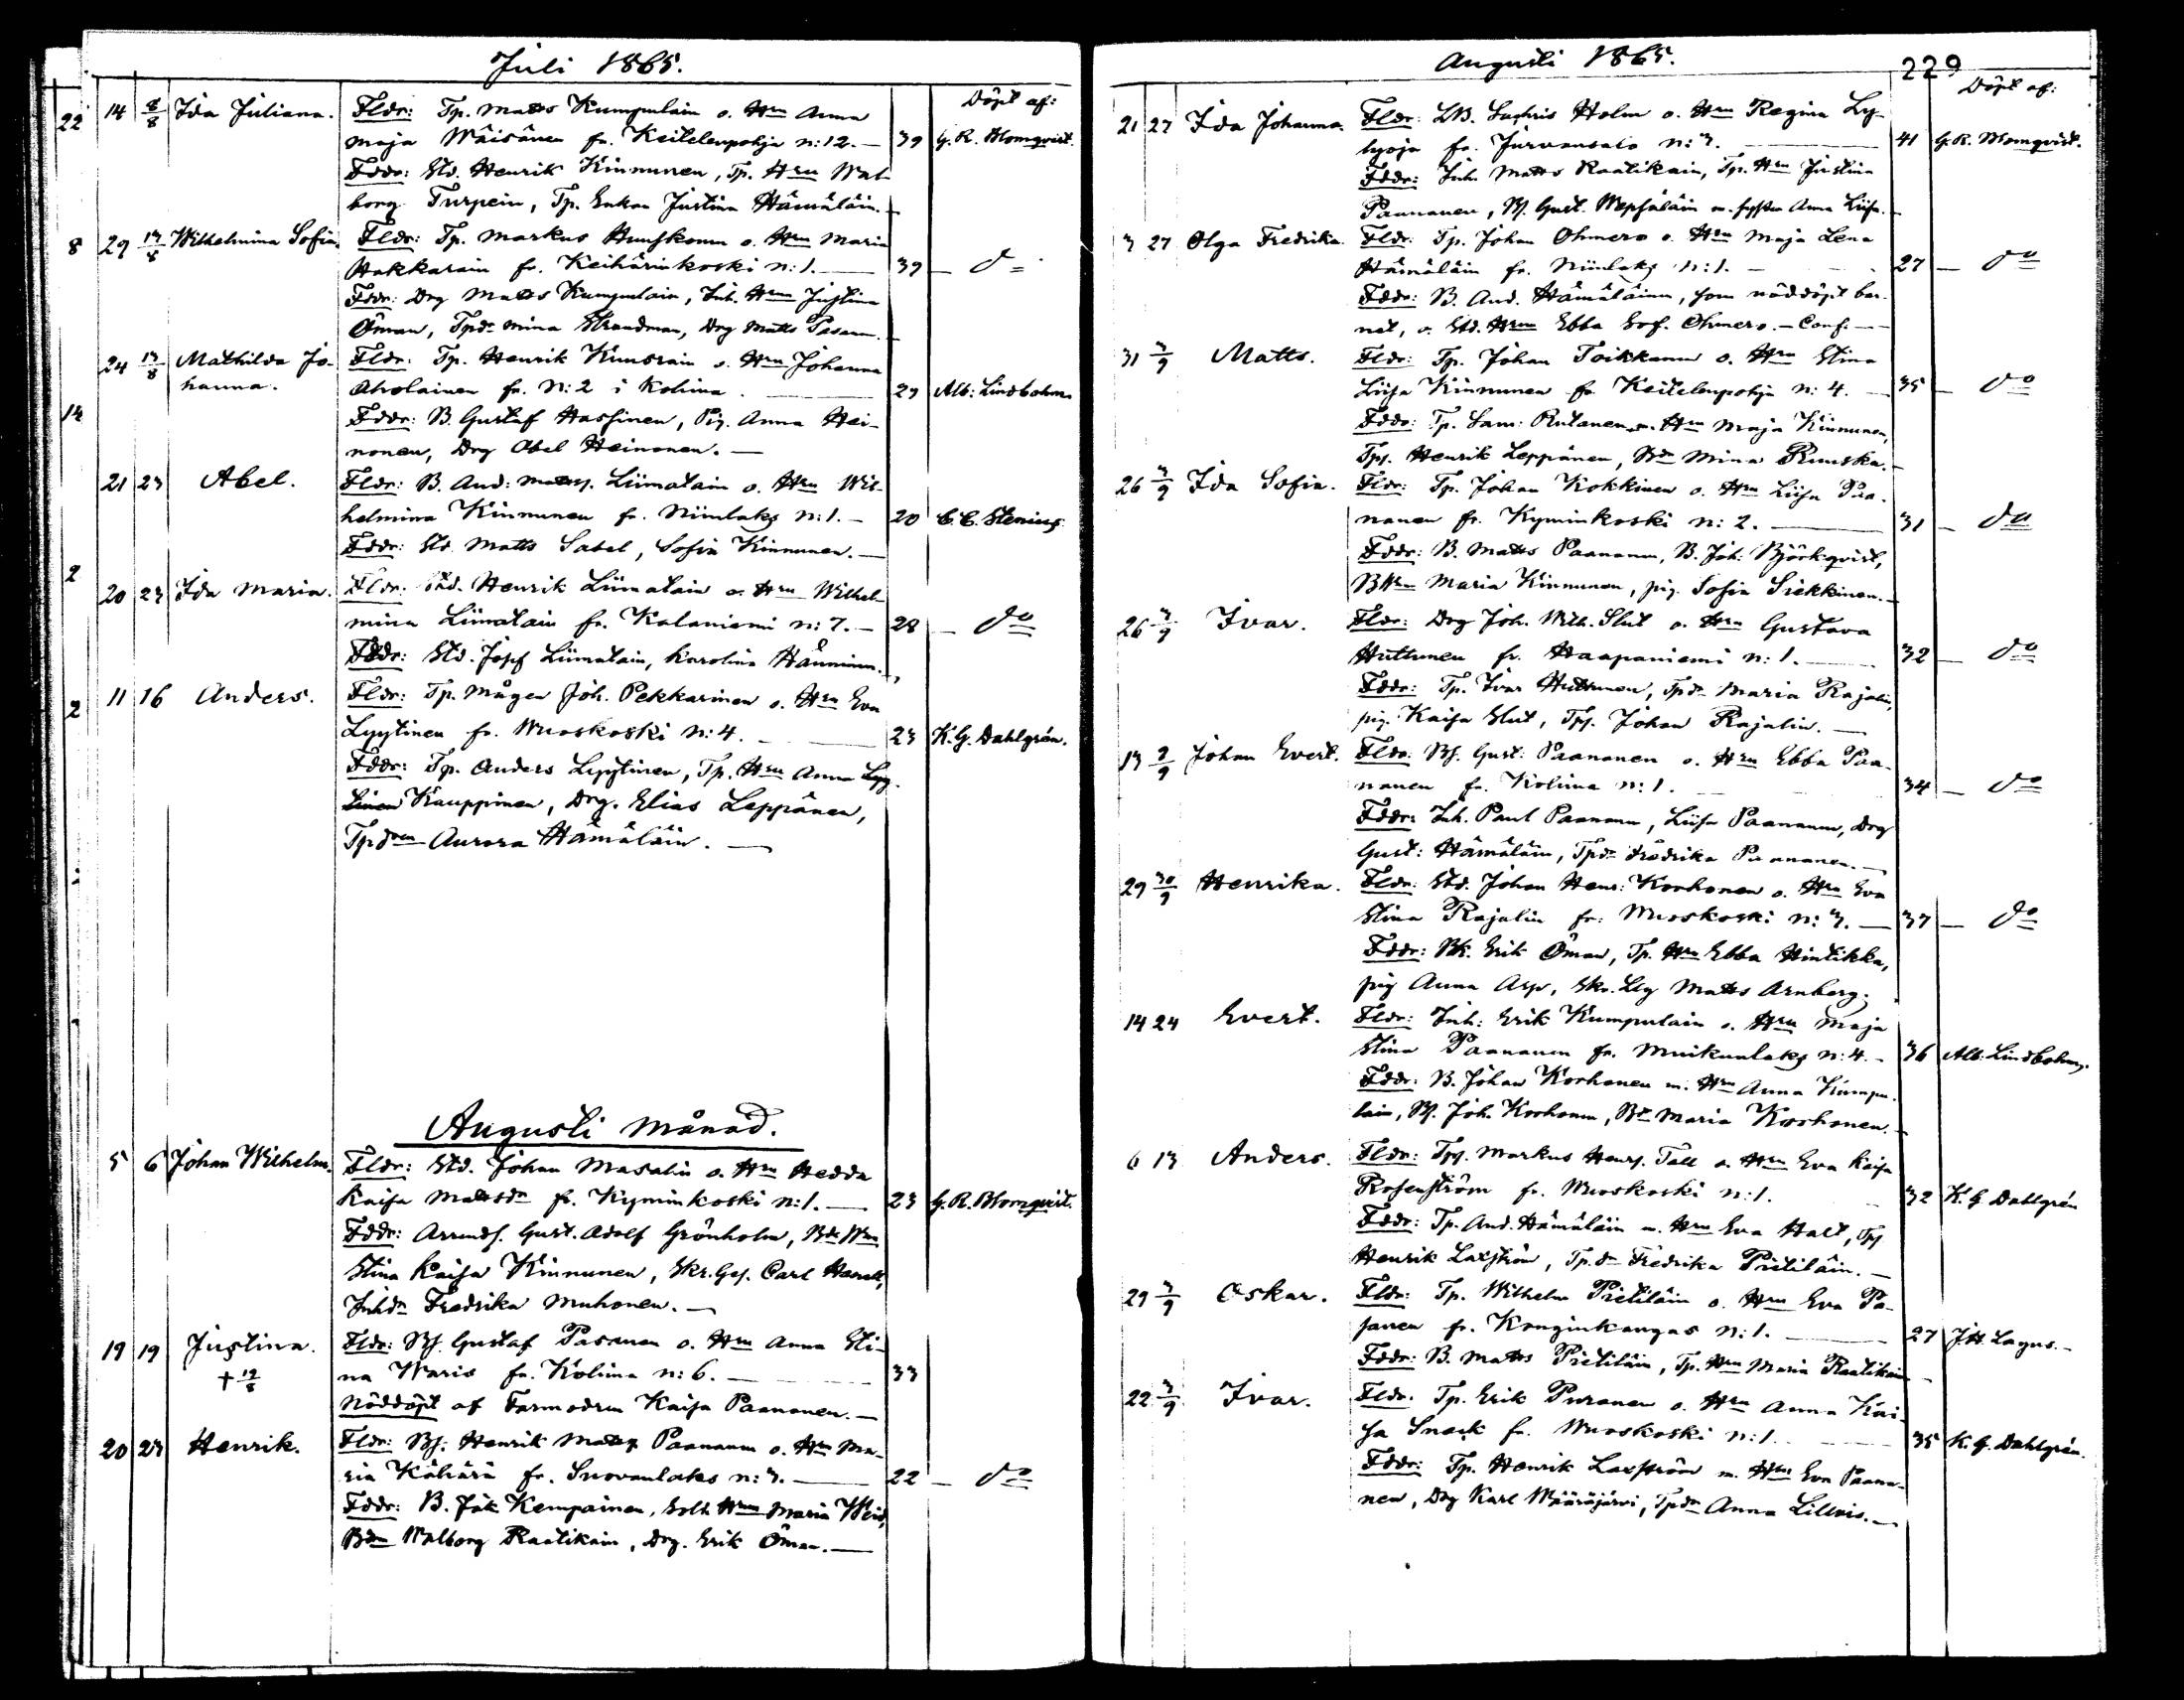 Juli 1865.
Döpt af:
22 14 8/8 Ida Juliana. Fldr: Tp. Matts Kumpulain o. Hru Anna
Maja Wäisänen fr. Keitelenpohja n:12. — 39 G. R. Blomqvist.
Fddr: Std. Henrik Kinnunen, Tp. Hru Wal-
borg Turpein, Tp. Enkan Justina Hämäläin. —
8 29 13/8 Wilhelmina Sofia. Fldr: Tp. Markus Huuskonen o. Hru Maria
Hakkarain fr. Keihärinkoski n:1. — 39 — do
Fddr: Drg Matts Kumpulain, Inh. Hru Justina
Öman, Tpdr Mina Strandman, Drg Matts Pasanen. —
24 13/8 Mathilda Jo- Fldr: Tp. Henrik Kuusrain o. Hru Johanna
hanna. Aholainen fr. N:2 i Kolima. — 29 Alb: Lindbohm.
14 Fddr: B. Gustaf Hassinen, Pig. Anna Hei-
nonen, Drg Abel Heinonen. —
21 23 Abel. Fldr: B. And: Matts. Liimatain o. Hru Wil-
helmina Kinnunen fr. Niinilaks n:1. — 20 C. C. Stenius.
Fddr: Std. Matts Sabel, Sofia Kinnunen. —
2 20 23 Ida Maria. Fldr: Std. Henrik Liimatain o. Hru Wilhel-
mina Liimatain fr. Kalaniemi n:7. — 28 — do
Fddr: Std. Josef Liimatain, Karolina Hänninen.
2 11 16 Anders. Fldr: Tp. Mågen Joh. Pekkarinen o. Hru Eva
Lyytinen fr. Wuoskoski n:4. — 23 K. G. Dahlgrén.
Fddr: Tp. Anders Lyytinen, Tp. Hru Anna Lyy-
tinen Kauppinen, Drg. Elias Leppänen,
Tpdren Aurora Hämäläin. —
Augusti Månad.
5 6 Johan Wilhelm. Fldr: Std. Johan Masalin o. Hru Hedda
Kaisa Mattsdr fr. Kyminkoski n:1. — 23 G. R. Blomqvist.
Fddr: Arrends. Gust. Adolf Grönholm, Bdr Hru
Stina Kaisa Kinnunen, Skr. Ges. Carl
Inhdr Fredrika Muhonen. —
19 19 Justina. Fldr: Bs. Gustaf Pasanen o. Hru Anna Sti-
† 19/8 na Waris fr. Kolima n:6. — 33
Nöddöpt af Farmodren Kaisa Paananen. —
20 27 Henrik. Fldr: Bs. Henrik Matts. Paananen o. Hru Ma-
ria Kähärä fr. Suovanlaks n:3. — 22 — do
Fddr: B. Joh Kempainen, Solt. Hru Maria
Bdr Walborg Raatikain, Drg. Erik Öman. —
Augusti 1865. 229
Döpt af:
21 27 Ida Johanna. Fldr: LB. Sachris Holm o. Hru Regina Ly-
lyoja fr. Jurvansalo n:3. — 41 G. R. Blomqvist.
Fddr: Inh. Matts Raatikain, Tp. Hru Justina
Paananen, Bs. Gust. Wepsäläin m. syster Anna Liisa. —
3 27 Olga Fredrika. Fldr: Tp. Johan Ohmero o. Hru Maja Lena
Hämäläin fr. Niinilaks n:1. — 27 — do
Fddr: B. And. Hämäläinen, som nöddöpt bar-
net, o. Std. Hru Ebba Sof. Ohmero. — Conf. —
31 3/9 Matts. Fldr: Tp. Johan Toikkanen o. Hru Stina
Liisa Kinnunen fr. Keitelenpohja n:4. — 35 — do
Fddr: Tp. Sam: Rutanen m. Hru Maja Kinnunen,
Tps. Henrik Leppänen, Bdr Mina Ruuska. —
26 3/9 Ida Sofia. Fldr: Tp. Johan Kokkinen o. Hru Liisa Paa-
nanen fr. Kyminkoski n:2. — 31 — do
Fddr: B. Matts Paananen, B. Joh: Björkqvist,
BHru Maria Kinnunen, pig. Sofia Siekkinen. —
26 3/9 Ivar. Fldr: Drg Joh. Wilh. Slut o. Hru Gustava
Huttunen fr. Haapaniemi n:1. — 32 — do
Fddr: Tp. Ivar Huttunen, Tpdr Maria Rajalin,
pig. Kaisa Slut, Tps. Johan Rajalin. —
13 3/9 Johan Evert. Fldr: Bs. Gust: Paananen o. Hru Ebba Paa-
nanen fr. Kolima n:1. 34 — do
Fddr: Inh. Paul Paananen, Liisa Paananen, Drg
Gust: Hämäläin, Tpdr Fredrika Paananen. —
29 30/9 Henrika. Fldr: Std. Johan Henr: Korhonen o. Hru Eva
Stina Rajalin fr: Wuoskoski n:3. — 37 — do
Fddr: Bk. Erik Öman, Tp. Hru Ebba Hintikka,
pig Anna Asp, Skr. Lrg Matts Arnberg.
14 24 Evert. Fldr: Inh: Erik Kumpulain o. Hru Maja
Stina Paananen fr. Muikunlaks n:4. — 36 Alb: Lindbohm.
Fddr: B. Johan Korhonen m. Hru Anna Kumpu-
lain, Bs. Joh. Korhonen, Bdr Maria Korhonen. —
6 13 Anders. Fldr: Tps. Markus Henrs. Tall o. Hru Eva Kaisa
Rosenström fr. Wuoskoski n:1. 32 K. G Dahlgrén
Fddr: Tp. And. Hämäläin m. Hru Eva Hall, Tps
Henrik Laxström, Tp.dr Fredrika Pietiläin. —
29 3/9 Oskar. Fldr: Tp. Wilhelm Pietiläin o. Hru Eva Pa-
sanen fr. Konginkangas n:1. — 27 J. H. Lagus. —
Fddr: B. Matts Pietiläin, Tp. Hru Maria Raatikain —
22 3/9 Ivar. Fldr: Tp. Erik Puranen o. Hru Anna Kai-
sa Snack fr. Wuoskoski n:1. 35 K. G. Dahlgrén.
Fddr: Tp. Henrik Laxström m. Hru Eva Paana-
nen, Drg Karl Määräjärvi, Tpdr Anna Lillvis. —